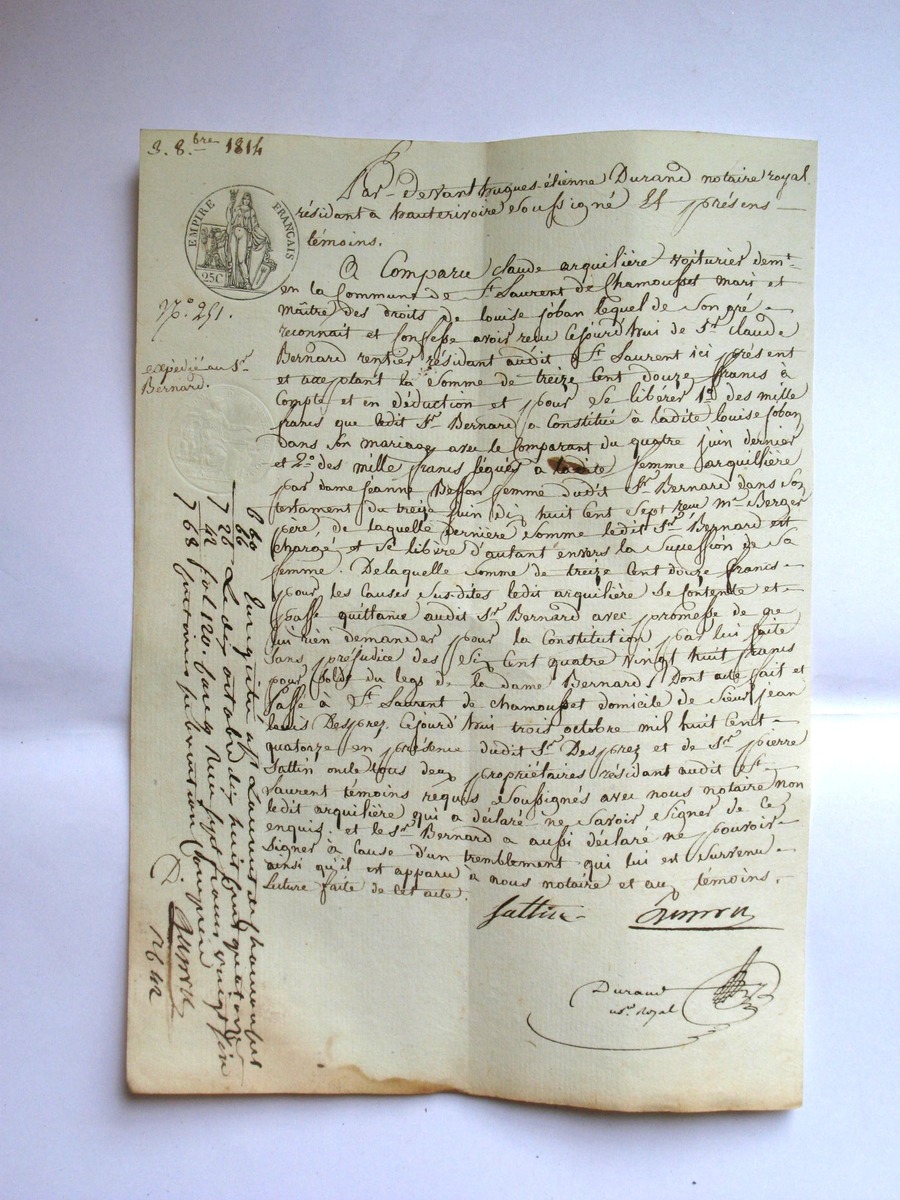 3. 8.bre 1814
EMPIRE FRANÇAIS
25C
N.o 251.
expédié au Sr.
Bernard.
Par-devant hugues-étienne Durand notaire royal
résidant a hauterivoire soussigné Et présens
témoins.
A Comparu claude arquilière voiturier demt.
en la Commune de St. Laurent de Chamousset mari et
maître des droits de louise joban lequel de son gré
reconnait et Confesse avoir reçu cejourd'hui de Sr. claude
Bernard rentier résidant audit St. Laurent ici présent
et acceptant la somme de treize Cent douze francs à
Compte et en déduction et pour se libérer 1o. des mille
francs que ledit Sr. Bernard a Constitué à ladite louise joban
dans son mariage avec le Comparant du quatre juin dernier
et 2o. des mille francs légués à ladite femme arquillière
par dame jeanne Besson femme dudit Sr. Bernard dans son
testament du treize juin dix huit Cent Sept reçu me. Berger
père, de laquelle dernière somme ledit Sr. Bernard est
chargé et se libère d'autant envers la Succession de Sa
femme. De laquelle somme de treize Cent douze francs
pour les Causes Sus-dites ledit arquilière se Contente et
passe quittance audit Sr. Bernard avec promesse de ne
lui rien demander pour la Constitution par lui faite
Sans préjudice des Six Cent quatre vingt huit francs
pour solde du legs de la dame Bernard. Dont acte fait et
Passé à St. Laurent de chamousset domicile de Sieur jean
louis Desprez. Cejourd'hui trois octobre mil huit Cent
quatorze en présence dudit Sr. Desprez et de Sr. pierre
Sattin oncle tous deux propriétaires résidant audit St.
Laurent témoins requis Soussignés avec nous notaire non
ledit arquilière qui a déclaré ne savoir Signer de Ce
enquis. et le Sr. Bernard a aussi déclaré ne pouvoir
Signer à Cause d'un tremblement qui lui est survenu
ainsi qu'il est apparu à nous notaire et aux témoins.
Lecture faite de Cet acte.
Sattin
Durand
no.re Royal
6 60
66
7 26
42
7 68
Enregistré à St Laurent de chamousset
Le dix octobre dix huit cent quatorze
fol 120. Case 9 Reçu Sept francs vingt Six
Centimes subvention Comprise
D.